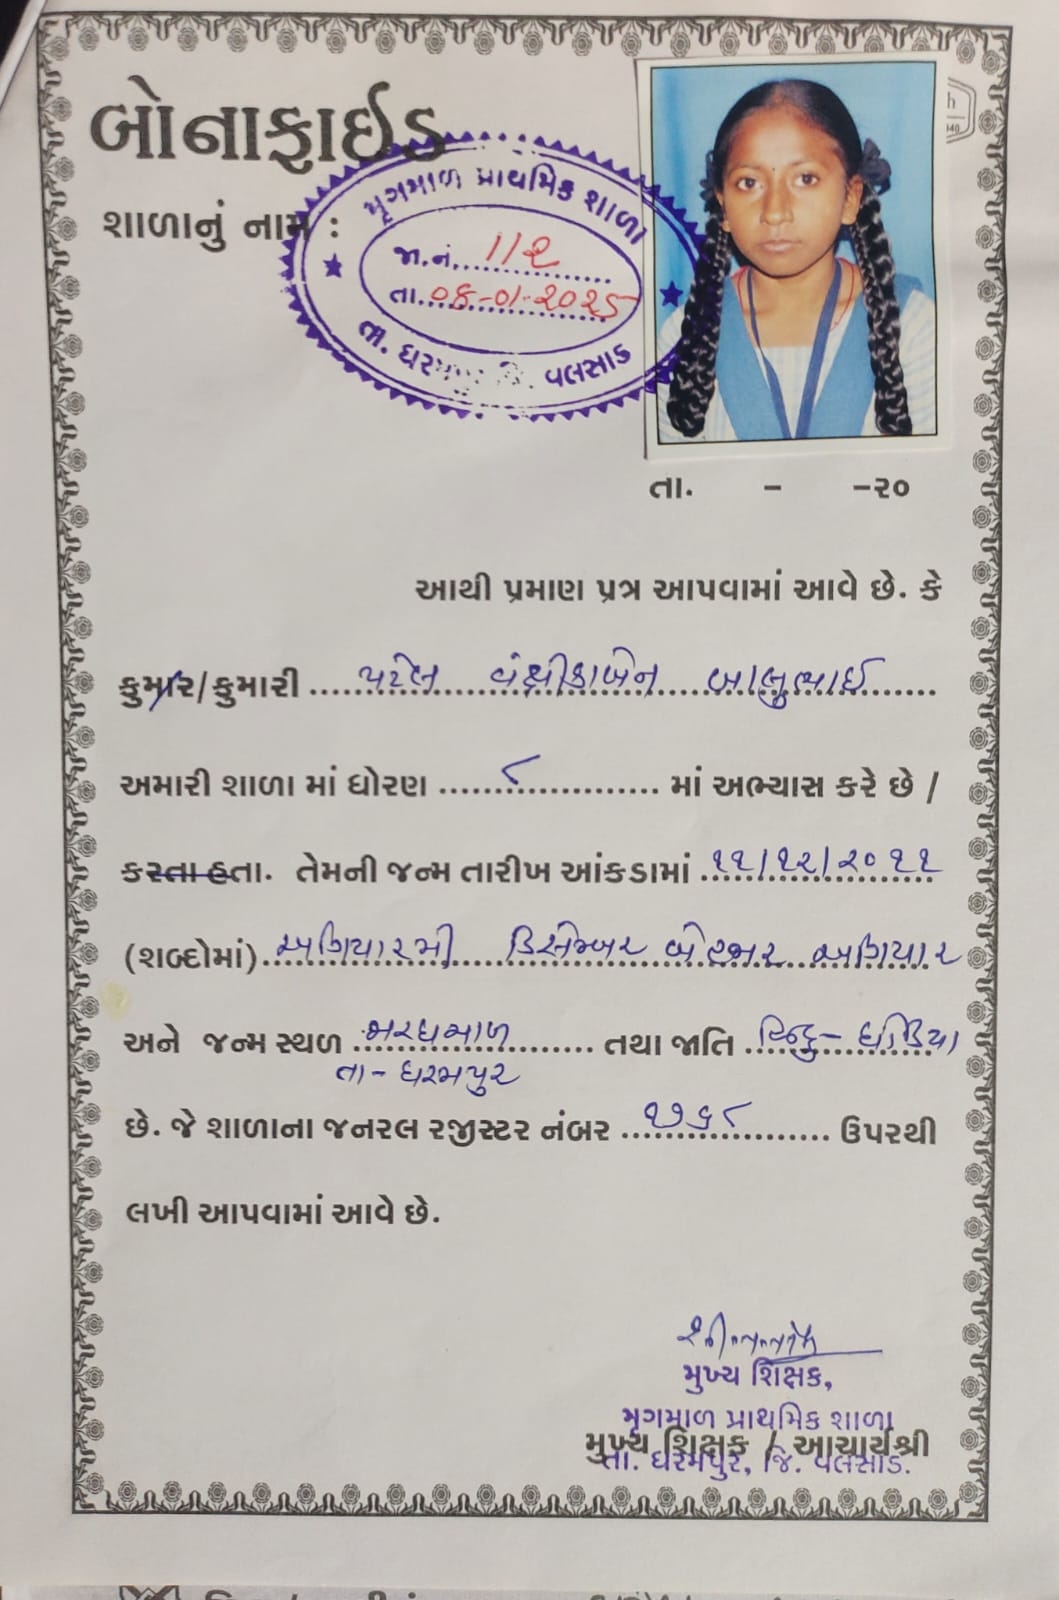 બોનાફાઈડ
શાળાનું નામ :
મૃગમાળ પ્રાથમિક શાળા
જા.નં. 112
તા. 08-01-2025
તા. ધરમપુર જિ. વલસાડ
તા. - -૨૦
આથી પ્રમાણ પત્ર આપવામાં આવે છે. કે
કુમાર/કુમારી પટેલ વંશીકાબેન બાલુભાઈ
અમારી શાળા માં ધોરણ ૮ માં અભ્યાસ કરે છે /
કરતા હતા. તેમની જન્મ તારીખ આંકડામાં ૧૧/૧૨/૨૦૧૧
(શબ્દોમાં) અગિયારમી ડિસેમ્બર બે હજાર અગિયાર
અને જન્મ સ્થળ તથા જાતિ હિન્દુ - ધોડિયા
તા - ધરમપુર
છે. જે શાળાના જનરલ રજીસ્ટર નંબર ૧૭૬૮ ઉપરથી
લખી આપવામાં આવે છે.
મુખ્ય શિક્ષક,
મૃગમાળ પ્રાથમિક શાળા
મુખ્ય શિક્ષક / આચાર્યશ્રી
તા. ધરમપુર, જિ. વલસાડ.